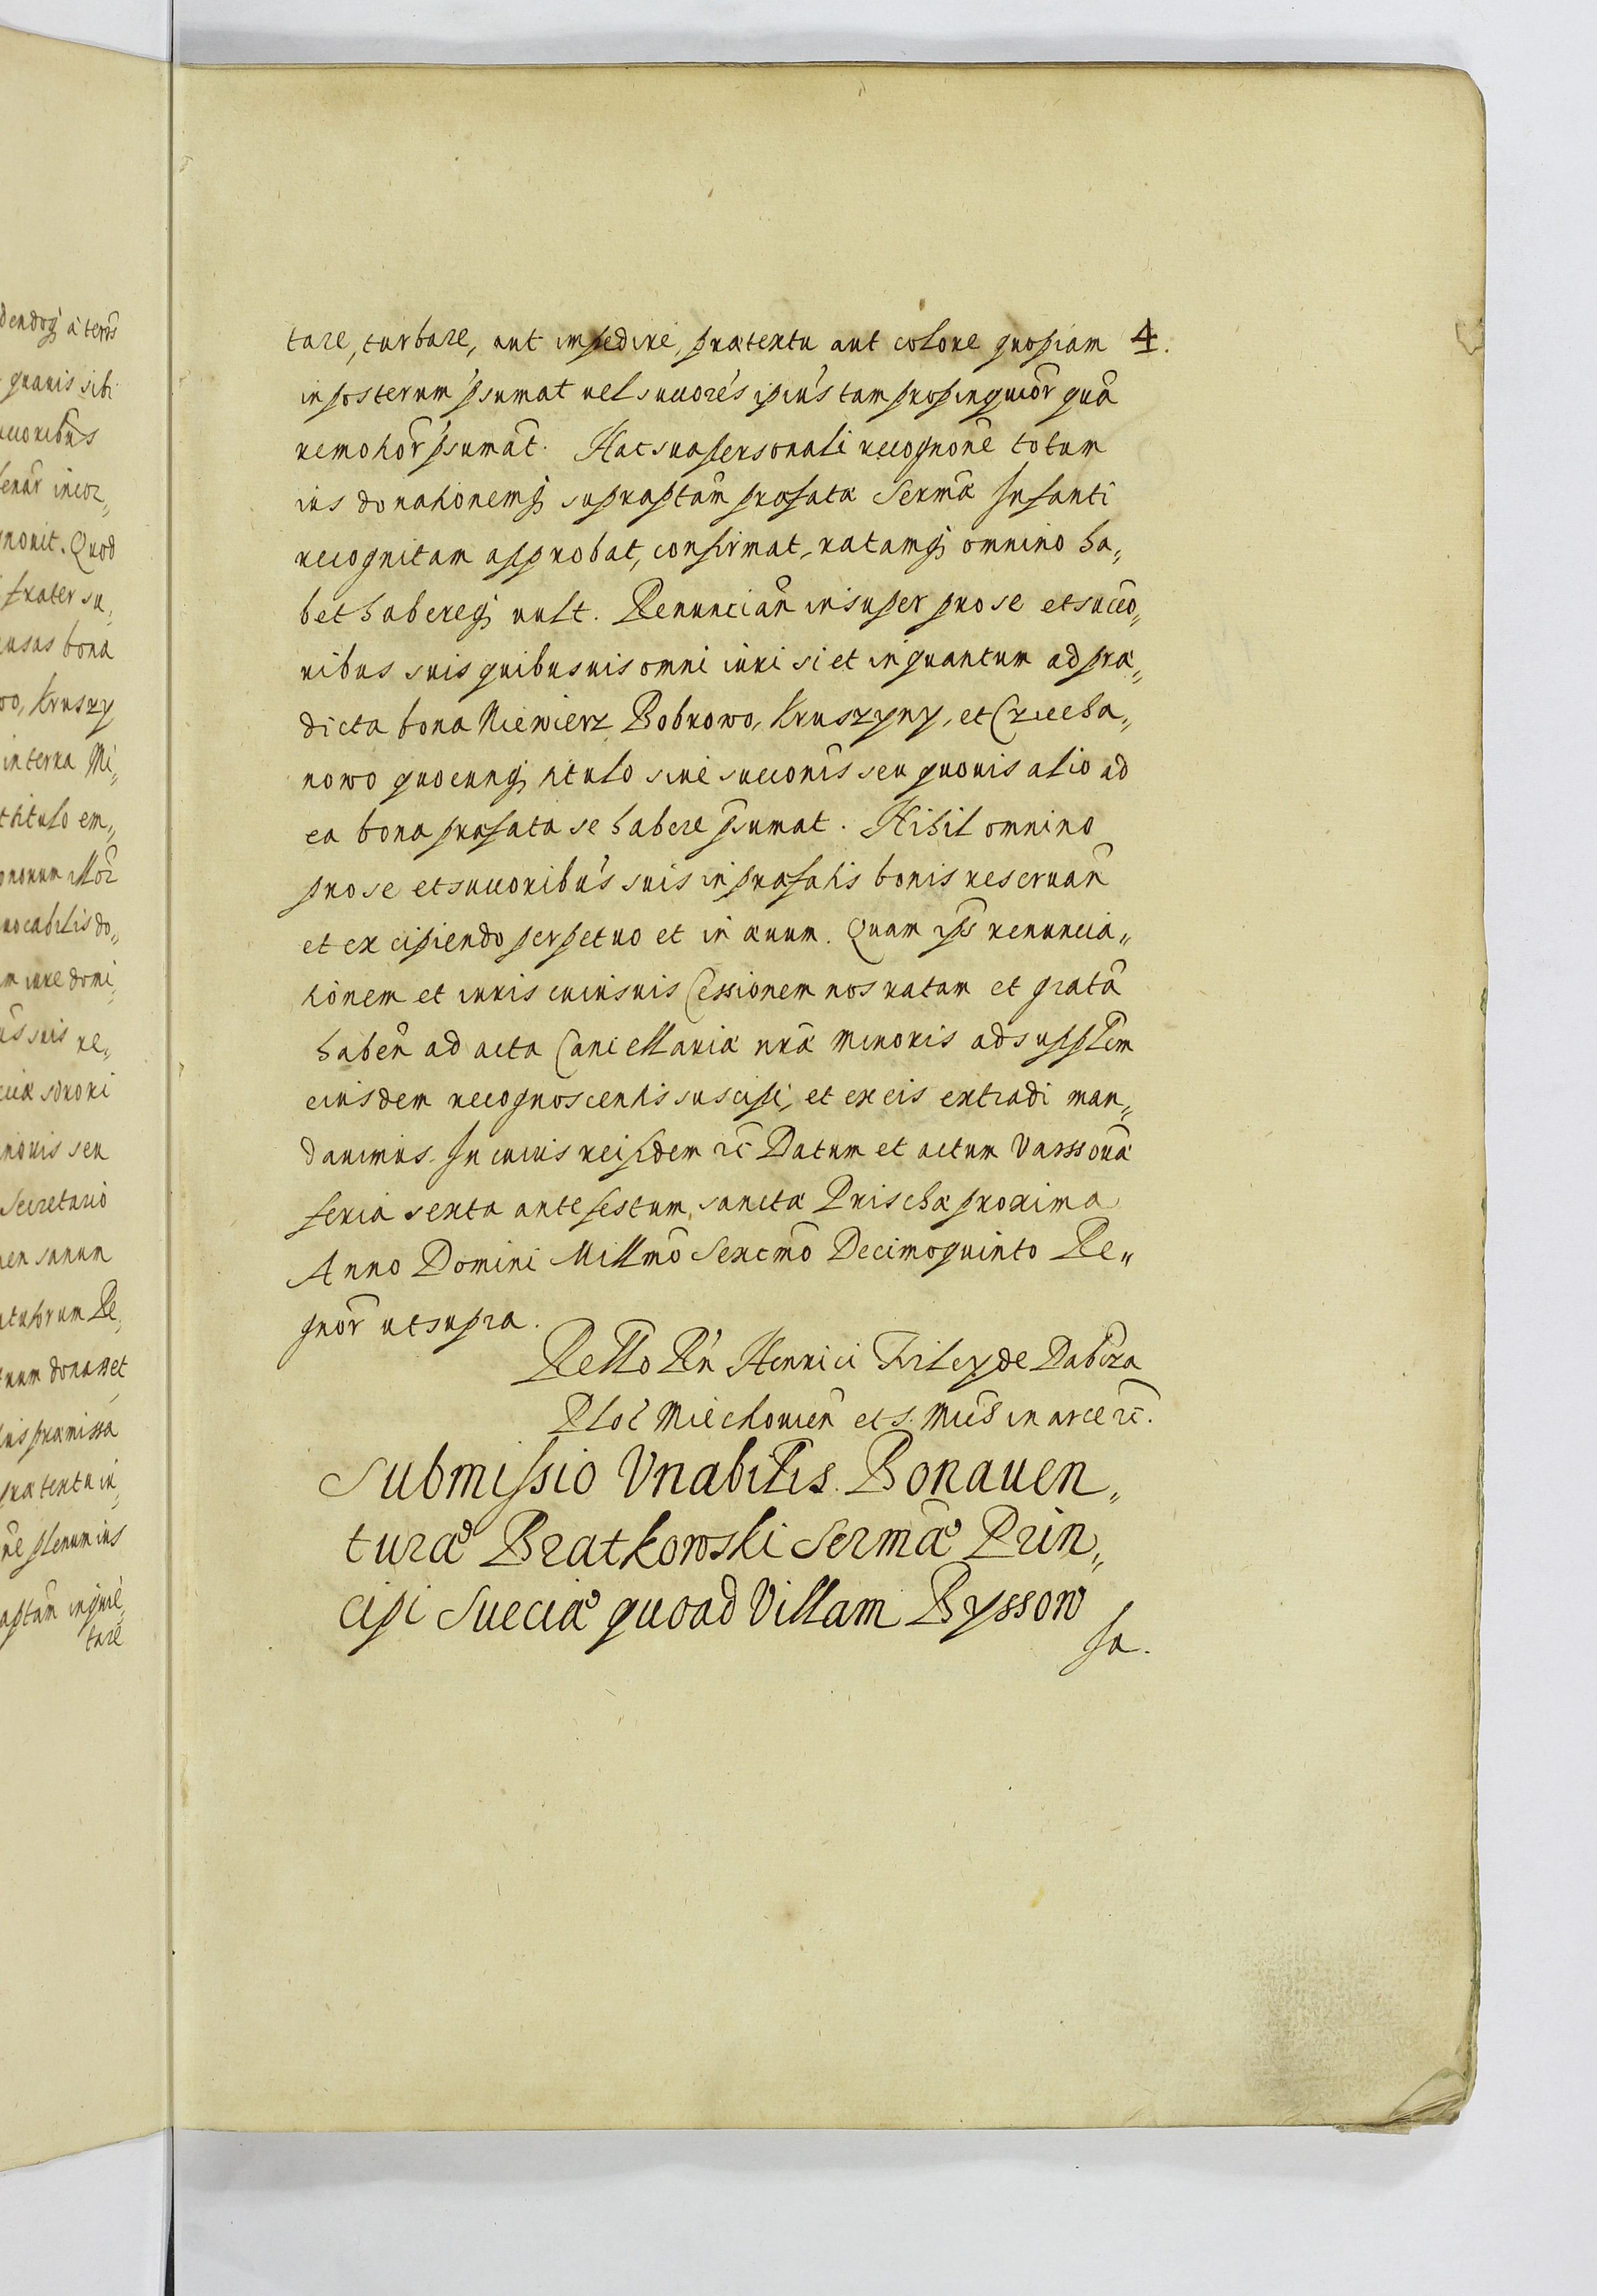 dendoq; a terris
quauis sibi
uccoribus
incor„
gnouit. Quod
frater su„
bona
wo, Kruszy
in terra Mi„
titulo em„
onorum illor
uocabilis do„
m iure domi„
suis re„
sorori
seu
Secretario
sanum
Re„
donasset
præmissa
prætextu in„
plenum ius
aptam inquie„
tare
tare, turbare, aut impedire, prætextu aut colore quopiam 4.
in posterum psumat uel succores ipius tam propinquior quā
remotior psumāt. Hac sua personali recognone totum
ius donationemq; supraptam præfatæ Sermæ Infanti
recognitam approbat, confirmat, ratamq; omnino ha„
bet habereq; uult. Renuncian insuper pro se et succo„
ribus suis quibusuis omni iuri si et in quantum ad præ„
dicta bona Niewierz Bobrowo, Kruszyny, et Czecha„
nowo quocunq; titulo siue succonis seu quouis alio ad
ea bona præfata se habere psumat. Nihil omnino
pro se et succoribus suis in præfatis bonis reseruan
et excipiendo perpetuo et in æuum. Quam ips renuncia„
tionem et iuris cuiusuis Cessionem nos ratam et gratā
haben ad acta Cancellariæ nræ Minoris ad supplem
eiusdem recognoscentis suscipi, et ex eis extradi man„
dauimus. In cuius rei fidem rc Datum et actum Varssouiæ
feria sexta ante festum sanctæ Prischæ proxima
Anno Domini Millmo Sexcmo Decimoquinto Re„
gnor ut supra.
Rello Rn Henrici Firley de Dabroa
Ploc Miechouien et s. Mics in arce rc.
Submissio Vnabilis Bonauen„
turæ Bratkowski Sermæ Prin„
cipi Sueciæ quoad Villam Ryssow
Sa.